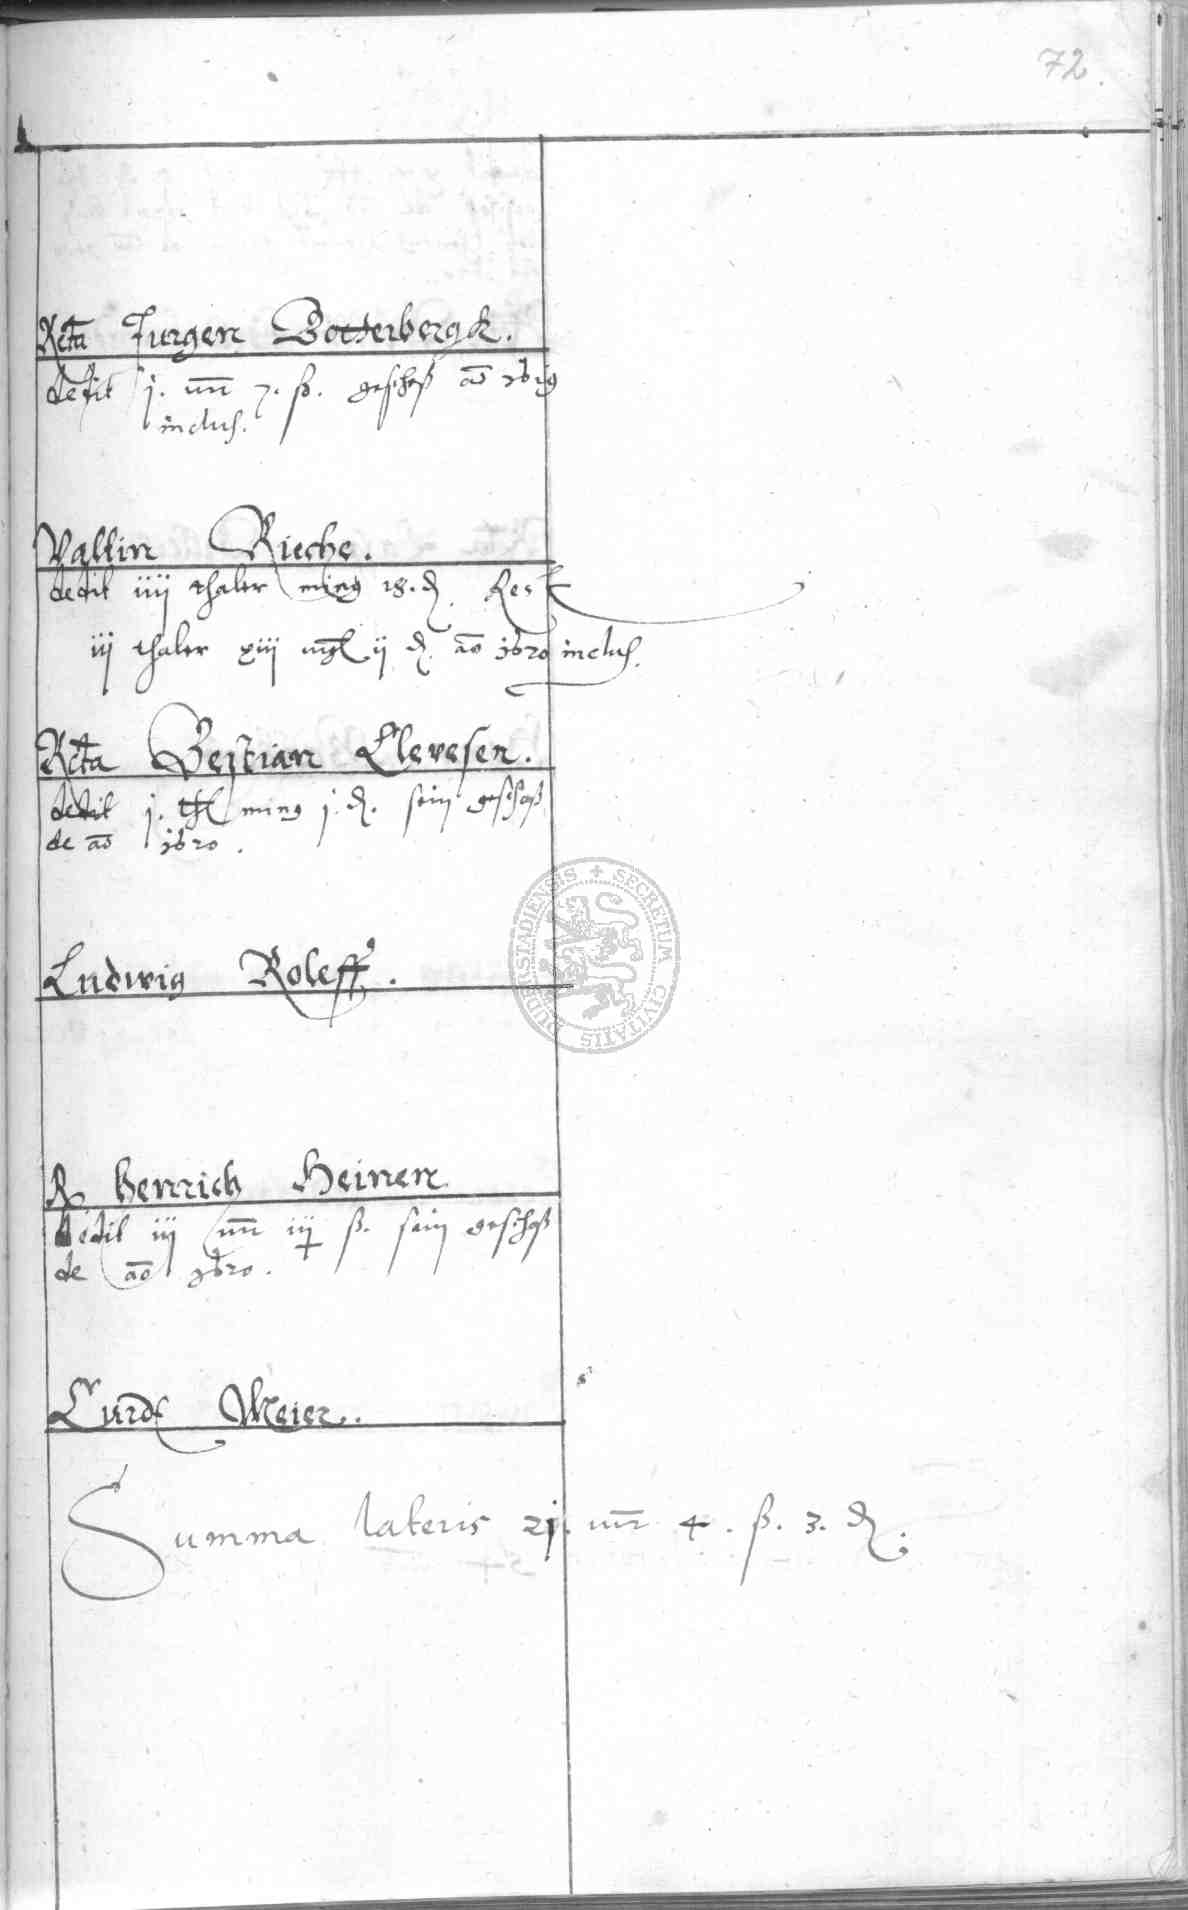 72
Rcta Jurgen Botterbergk.
dedit j. mr 7. ß. geschoß ao 1619
inclus.
Valtin Rieche.
dedit iiij thaler ming 18. ₰ Rest
iij thaler xiij mgl ij ₰. ao 1620 inclus.
Rcta Bestian Clevesen.
dedit j. thl ming j. ₰. sein geschoß
de ao 1620.
Ludwig Roleff.
SECRETUM CIVITATIS DUDERSTADIENSIS
R Henrich Heinen
dedit iij mr iij ß. sein geschoß
de ao 1620.
Curdt Meier.
Summa lateris 21. mr 4. ß. 3. ₰.